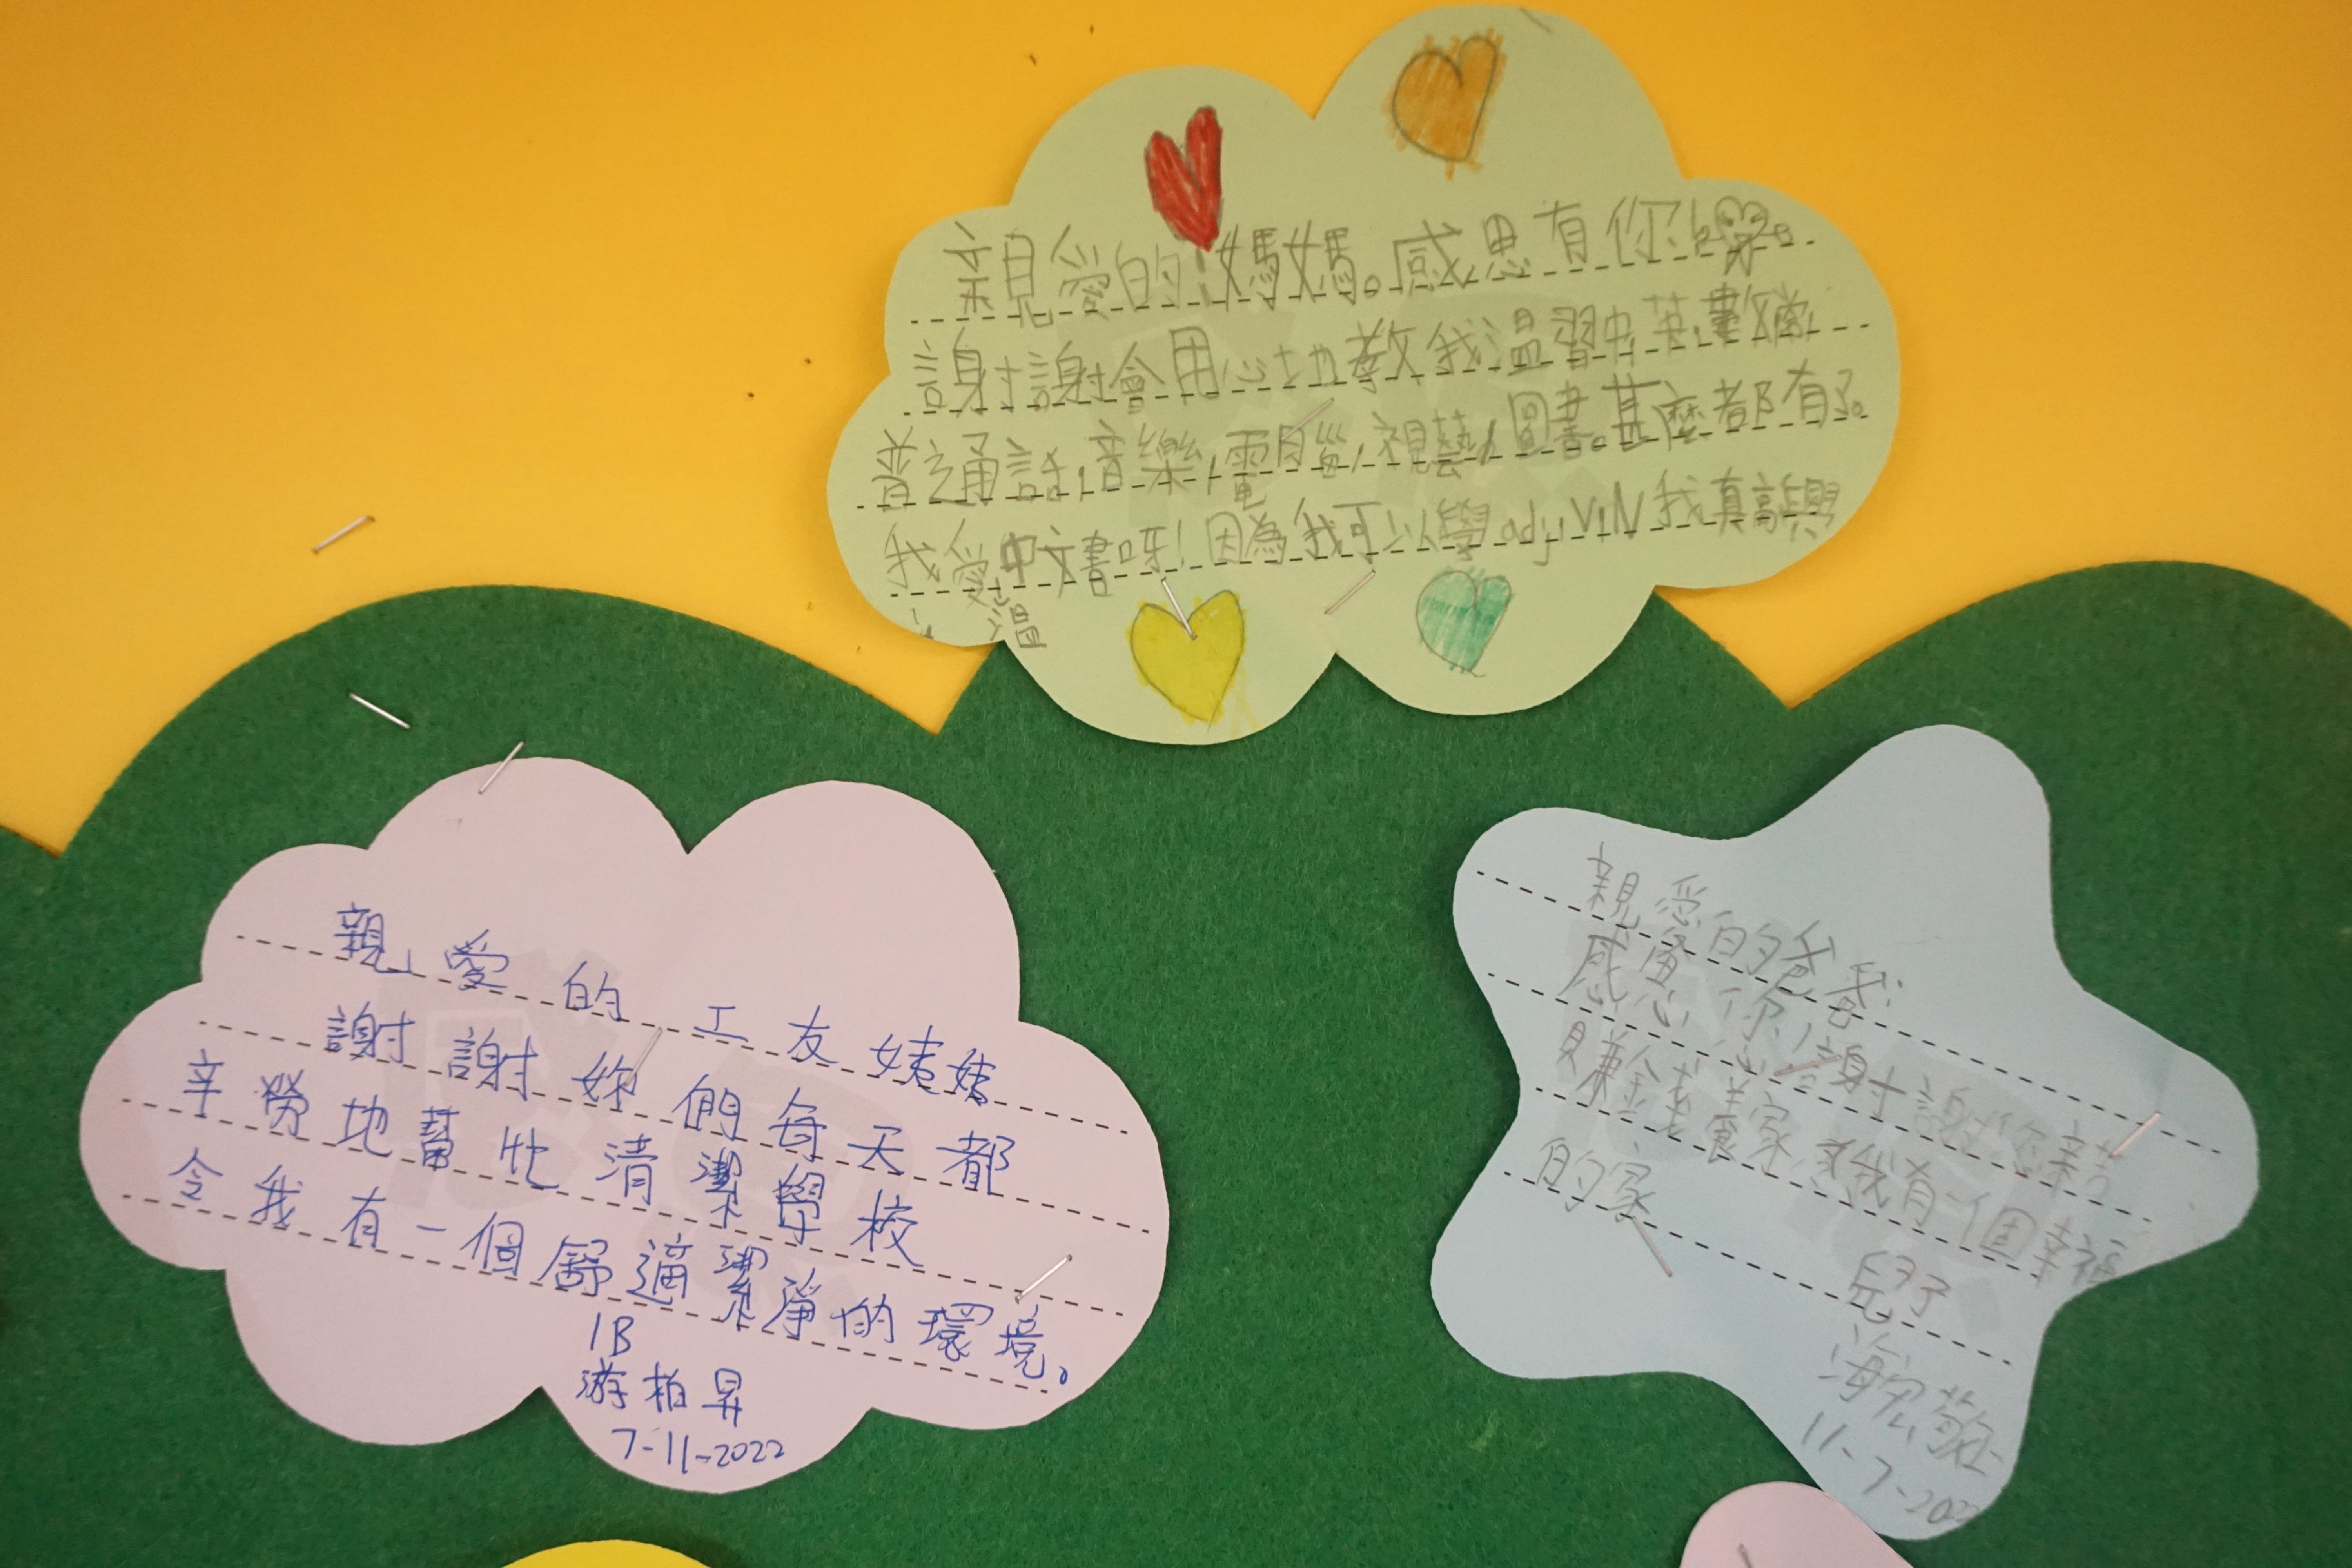 親愛的媽媽。感恩有你!
謝謝會用心地教我溫習中,英,數,
普通話,音樂,電腦,視藝,圖書。甚麼都有了。
我愛中文書呀!因為我可以學adj,V,N我真高興
溫
親愛的工友姨姨
謝謝妳們每天都
辛勞地幫忙清潔學校
令我有一個舒適潔淨的環境。
1B
游柏昇
7-11-2022
親愛的爸爸:
感恩你,謝謝你辛苦
賺錢養家,我有一個幸福
的家
兒子
海宏
11-7-202